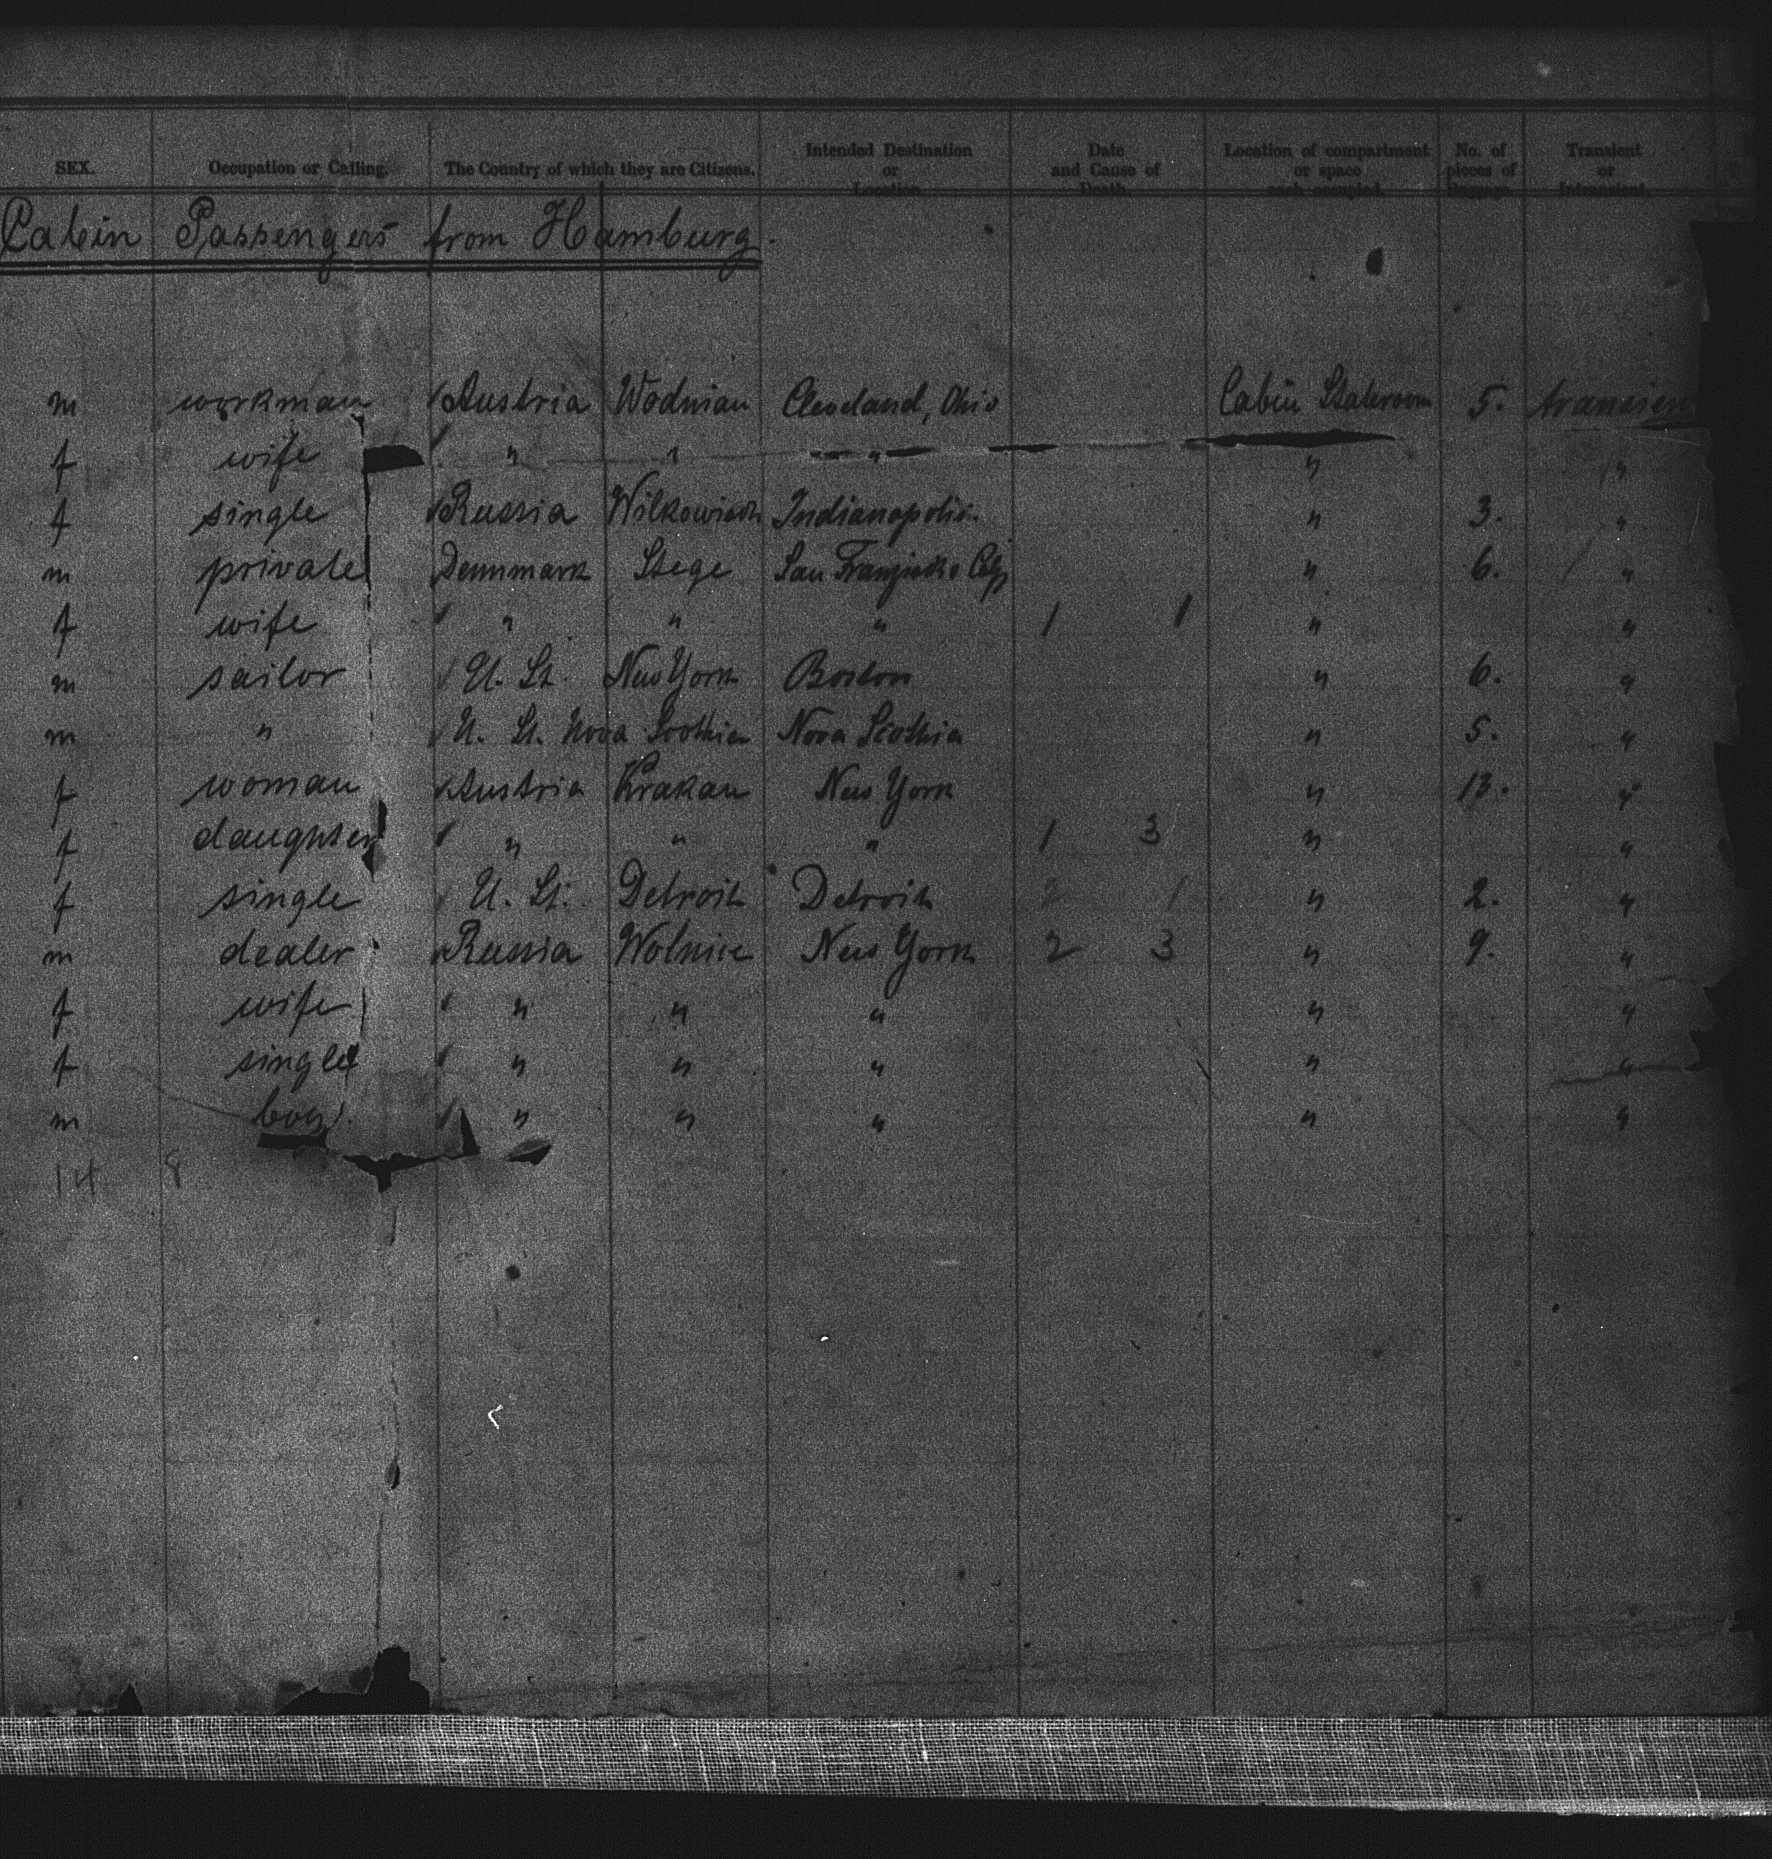 SEX. Occupation or Calling. The Country of which they are Citizens. Intended Destination or Location Date and Cause of Death Location of compartment or space each occupied No. of pieces of Transient or Intransient
Cabin Passengers from Hamburg.
m workman Austria Wodnian Cleveland, Ohio Cabin Stateroom 5. transien
f wife " " " " "
f single Russia Indianapolis " 3. "
m private Dennmark Stege San " 6. "
f wife " " " 1 1 " "
m sailor U. St. New York Boston " 6. "
m " U. St. Nova Scothia Nova Scothia " 5. "
f woman Austria Krakau New York " 13. "
f daughter " " " 1 3 " "
f single U. St. Detroit Detroit 2 1 " 2. "
m dealer Russia New York 2 3 " 9. "
f wife " " " " "
f single " " " " "
m boy " " " " "
14 8